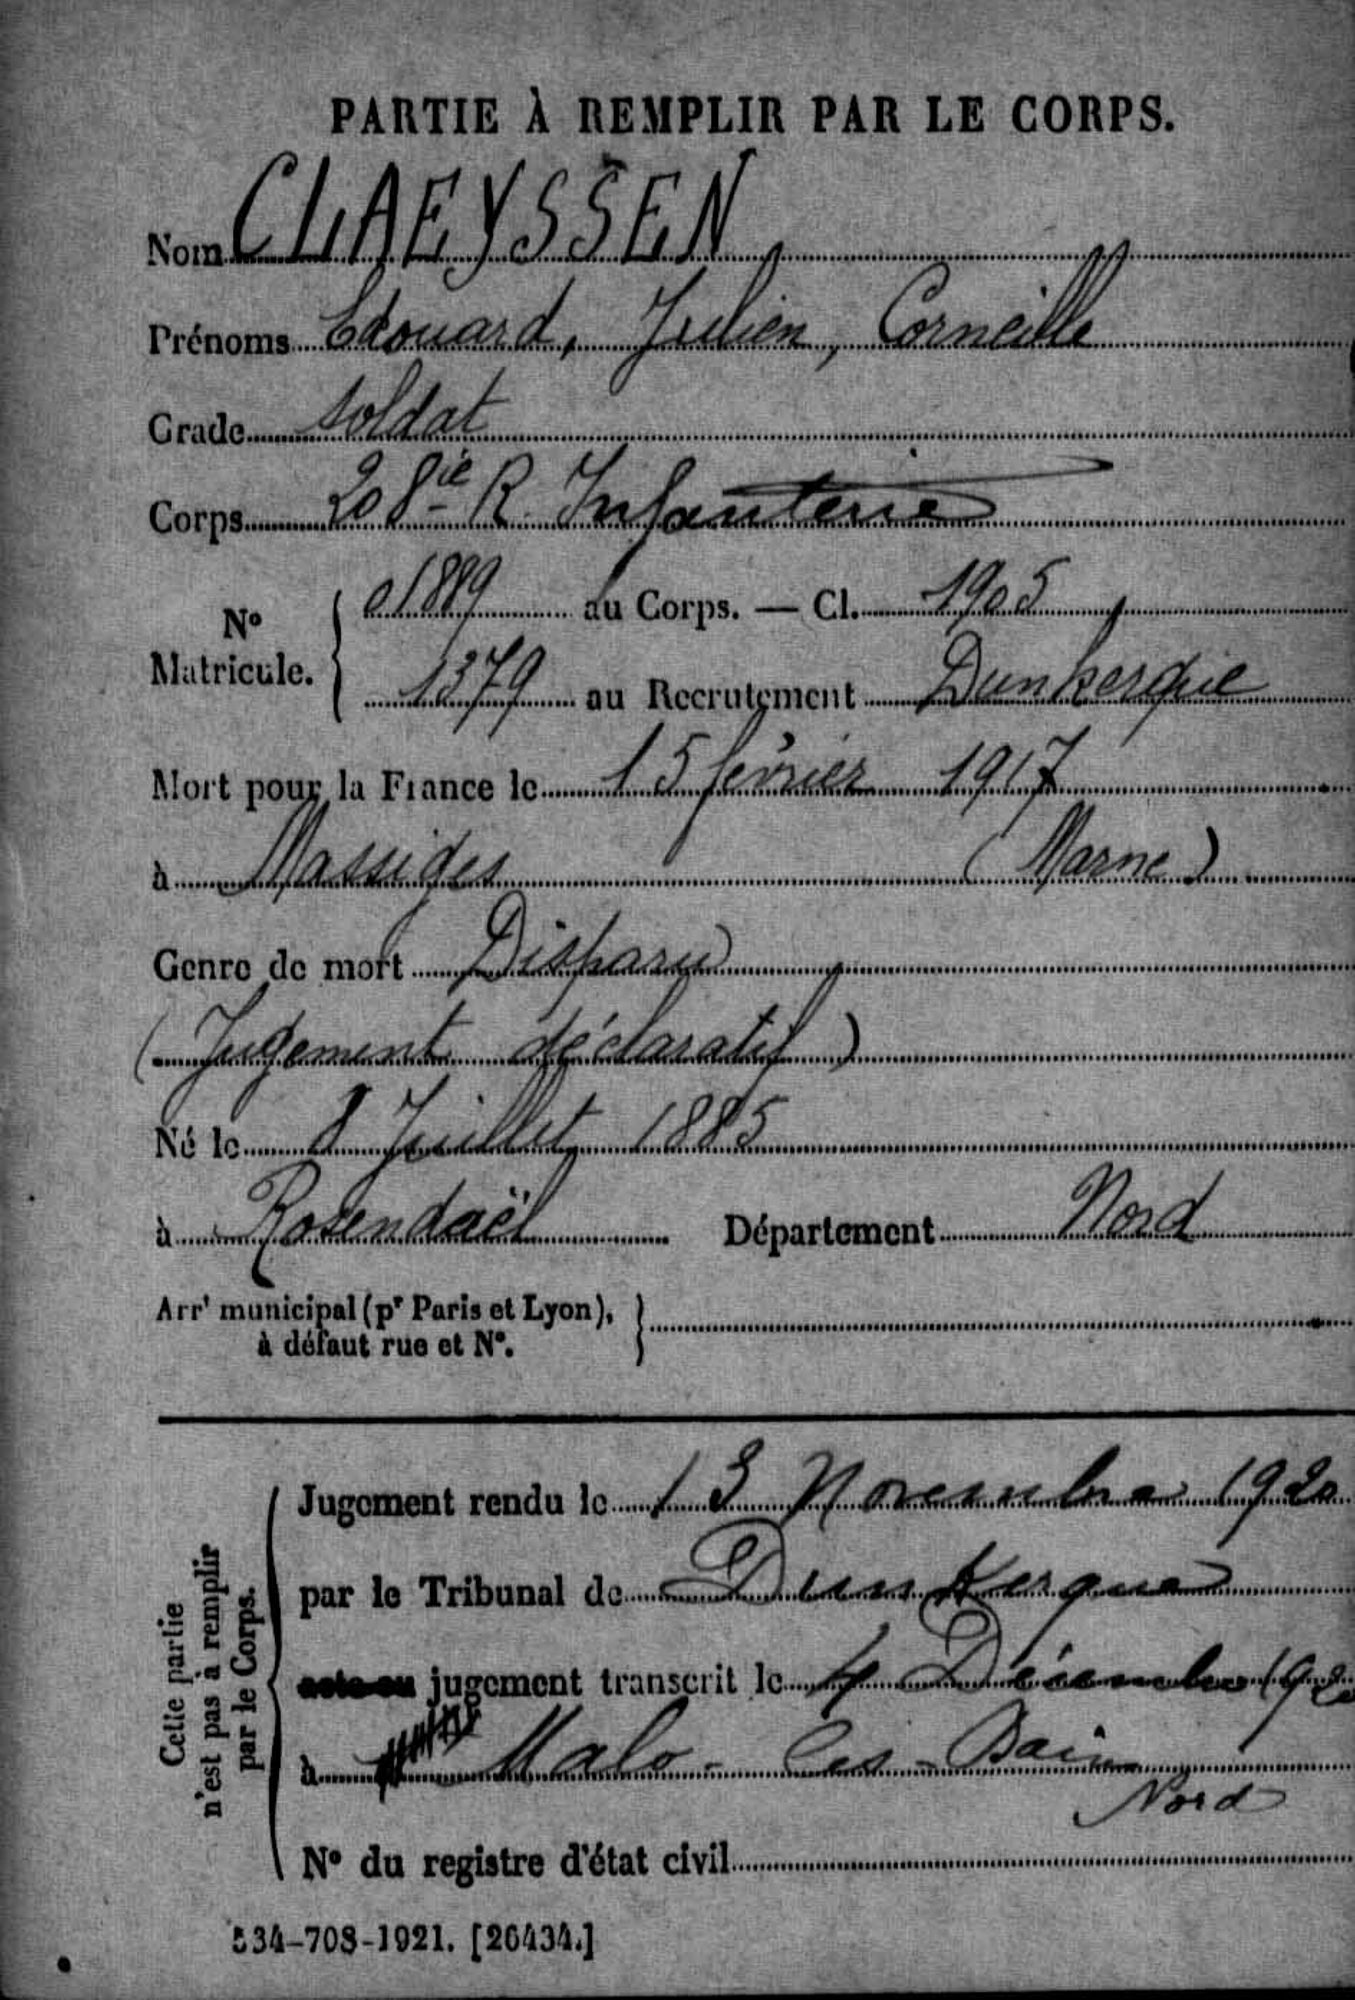 PARTIE À REMPLIR PAR LE CORPS.
Nom CLAEYSSEN
Prénoms Edouard, Julien, Corneille
Grade soldat
Corps 208ie R. Infanterie
No Matricule. 01889 au Corps. — Cl. 1905
1379 au Recrutement Dunkerque
Mort pour la France le 15 février 1917
à Massiges (Marne)
Genre de mort Disparu
(Jugement déclaratif)
Né le 8 Juillet 1885
à Rosendaël Département Nord
Arrt municipal (pr Paris et Lyon),
à défaut rue et No.
Cette partie
n'est pas à remplir
par le Corps.
Jugement rendu le 13 Novembre 1920
par le Tribunal de Dunkerque
acte ou jugement transcrit le 4 Décembre 1920
à Malo-les-Bains
Nord
No du registre d'état civil
534-708-1921. [26434.]